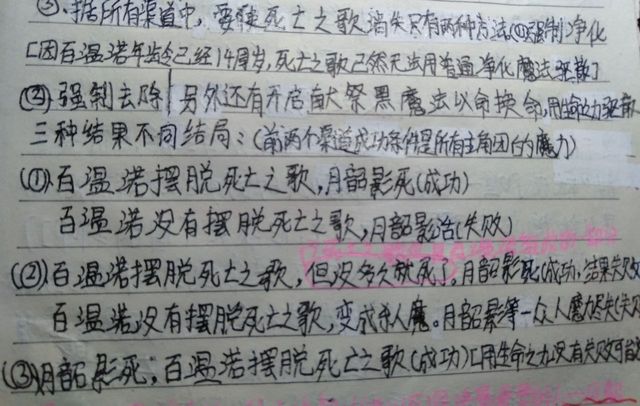 ③、括所有渠道中，要使死亡之歌消失只有两种方法(①强制净化
[因百温诺年龄已经14周岁，死亡之歌已然无法用普通净化魔法驱散]
(②)强制去除|另外还有开启献祭黑魔法以命换命，用生命之力驱散
三种结果不同结局：(前两个渠道成功条件是所有主角团的魔力)
(①)百温诺摆脱死亡之歌，月韶影死(成功)
百温诺没有摆脱死亡之歌，月韶影治(失败)
(②)百温诺摆脱死亡之歌，但没多久就死了。月韶影死(成功，结果失败
百温诺没有摆脱死亡之歌，变成杀人魔。月韶影等一众人魔尽失(失
(③)月韶影死；百温诺摆脱死亡之歌(成功)[用生命之力没有失败可能